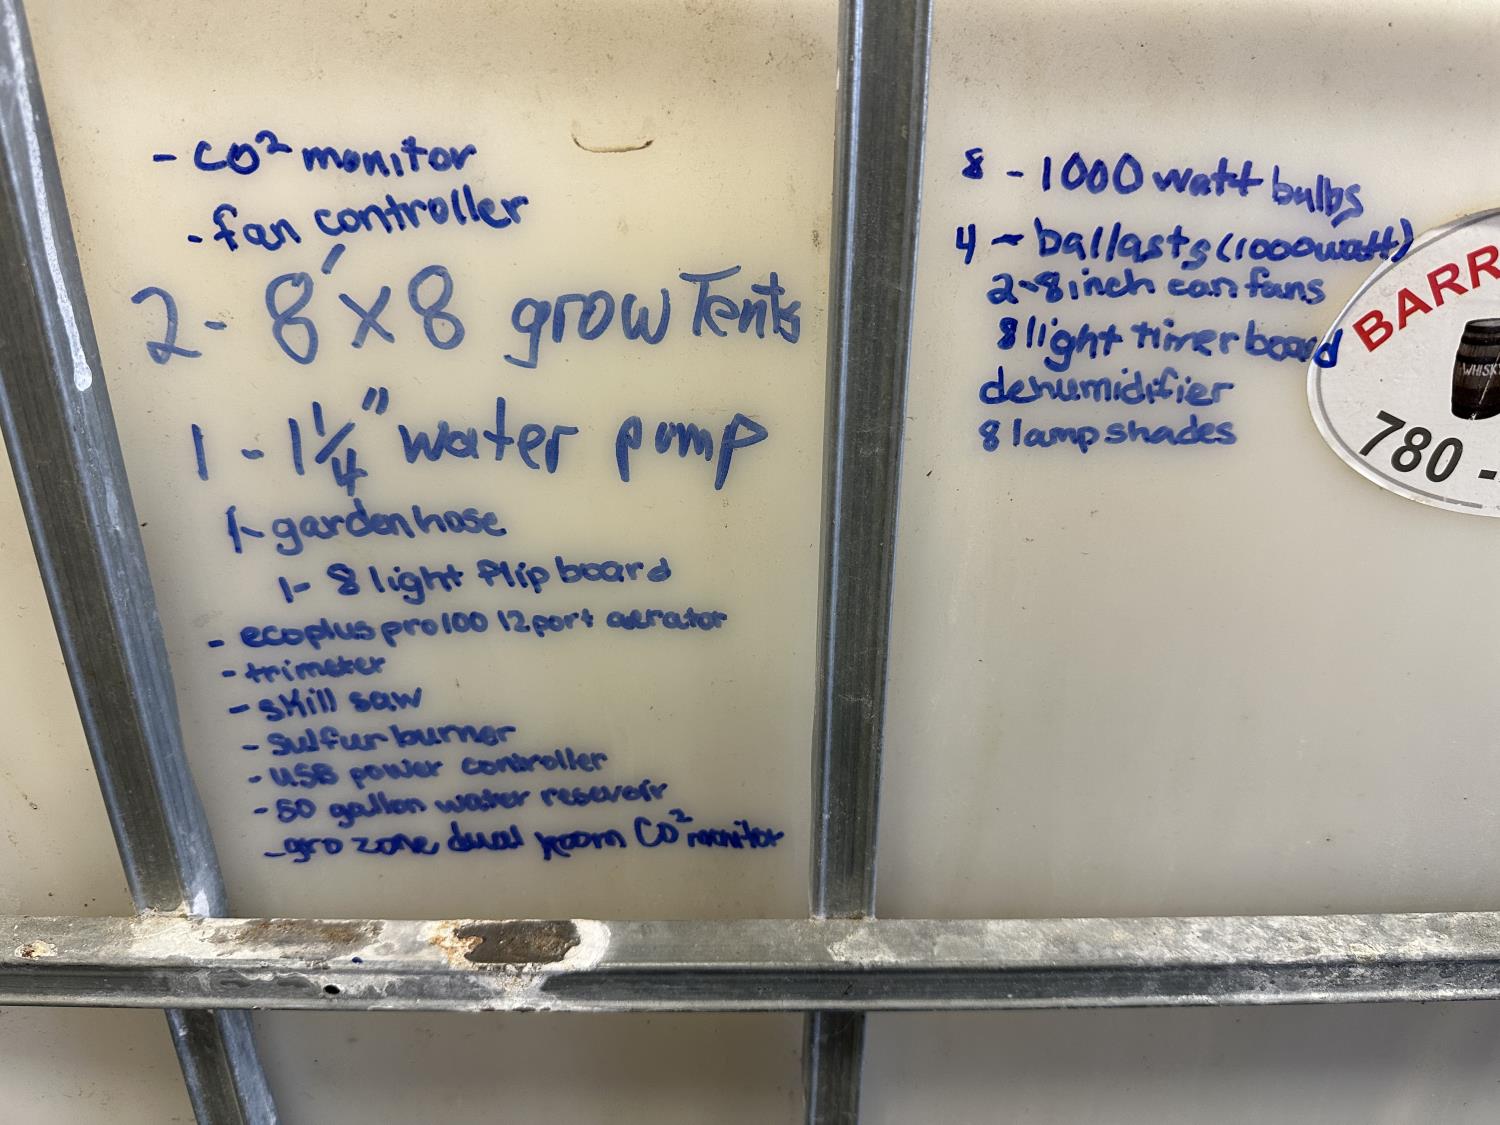 - CO² monitor
- fan controller
2 - 8' x 8 grow Tents
1 - 1 1/4" water pump
1- garden hose
1- 8 light flip board
- ecoplus pro 100 12 port aerator
- trimeter
- skill saw
- sulfur burner
- USB power controller
- 50 gallon water resevoir
- gro zone dual room CO² monitor
8 - 1000 watt bulbs
4 - ballasts (1000watt)
2-8 inch can fans
8 light timer board
dehumidifier
8 lamp shades
BARR
WHISK
780 -